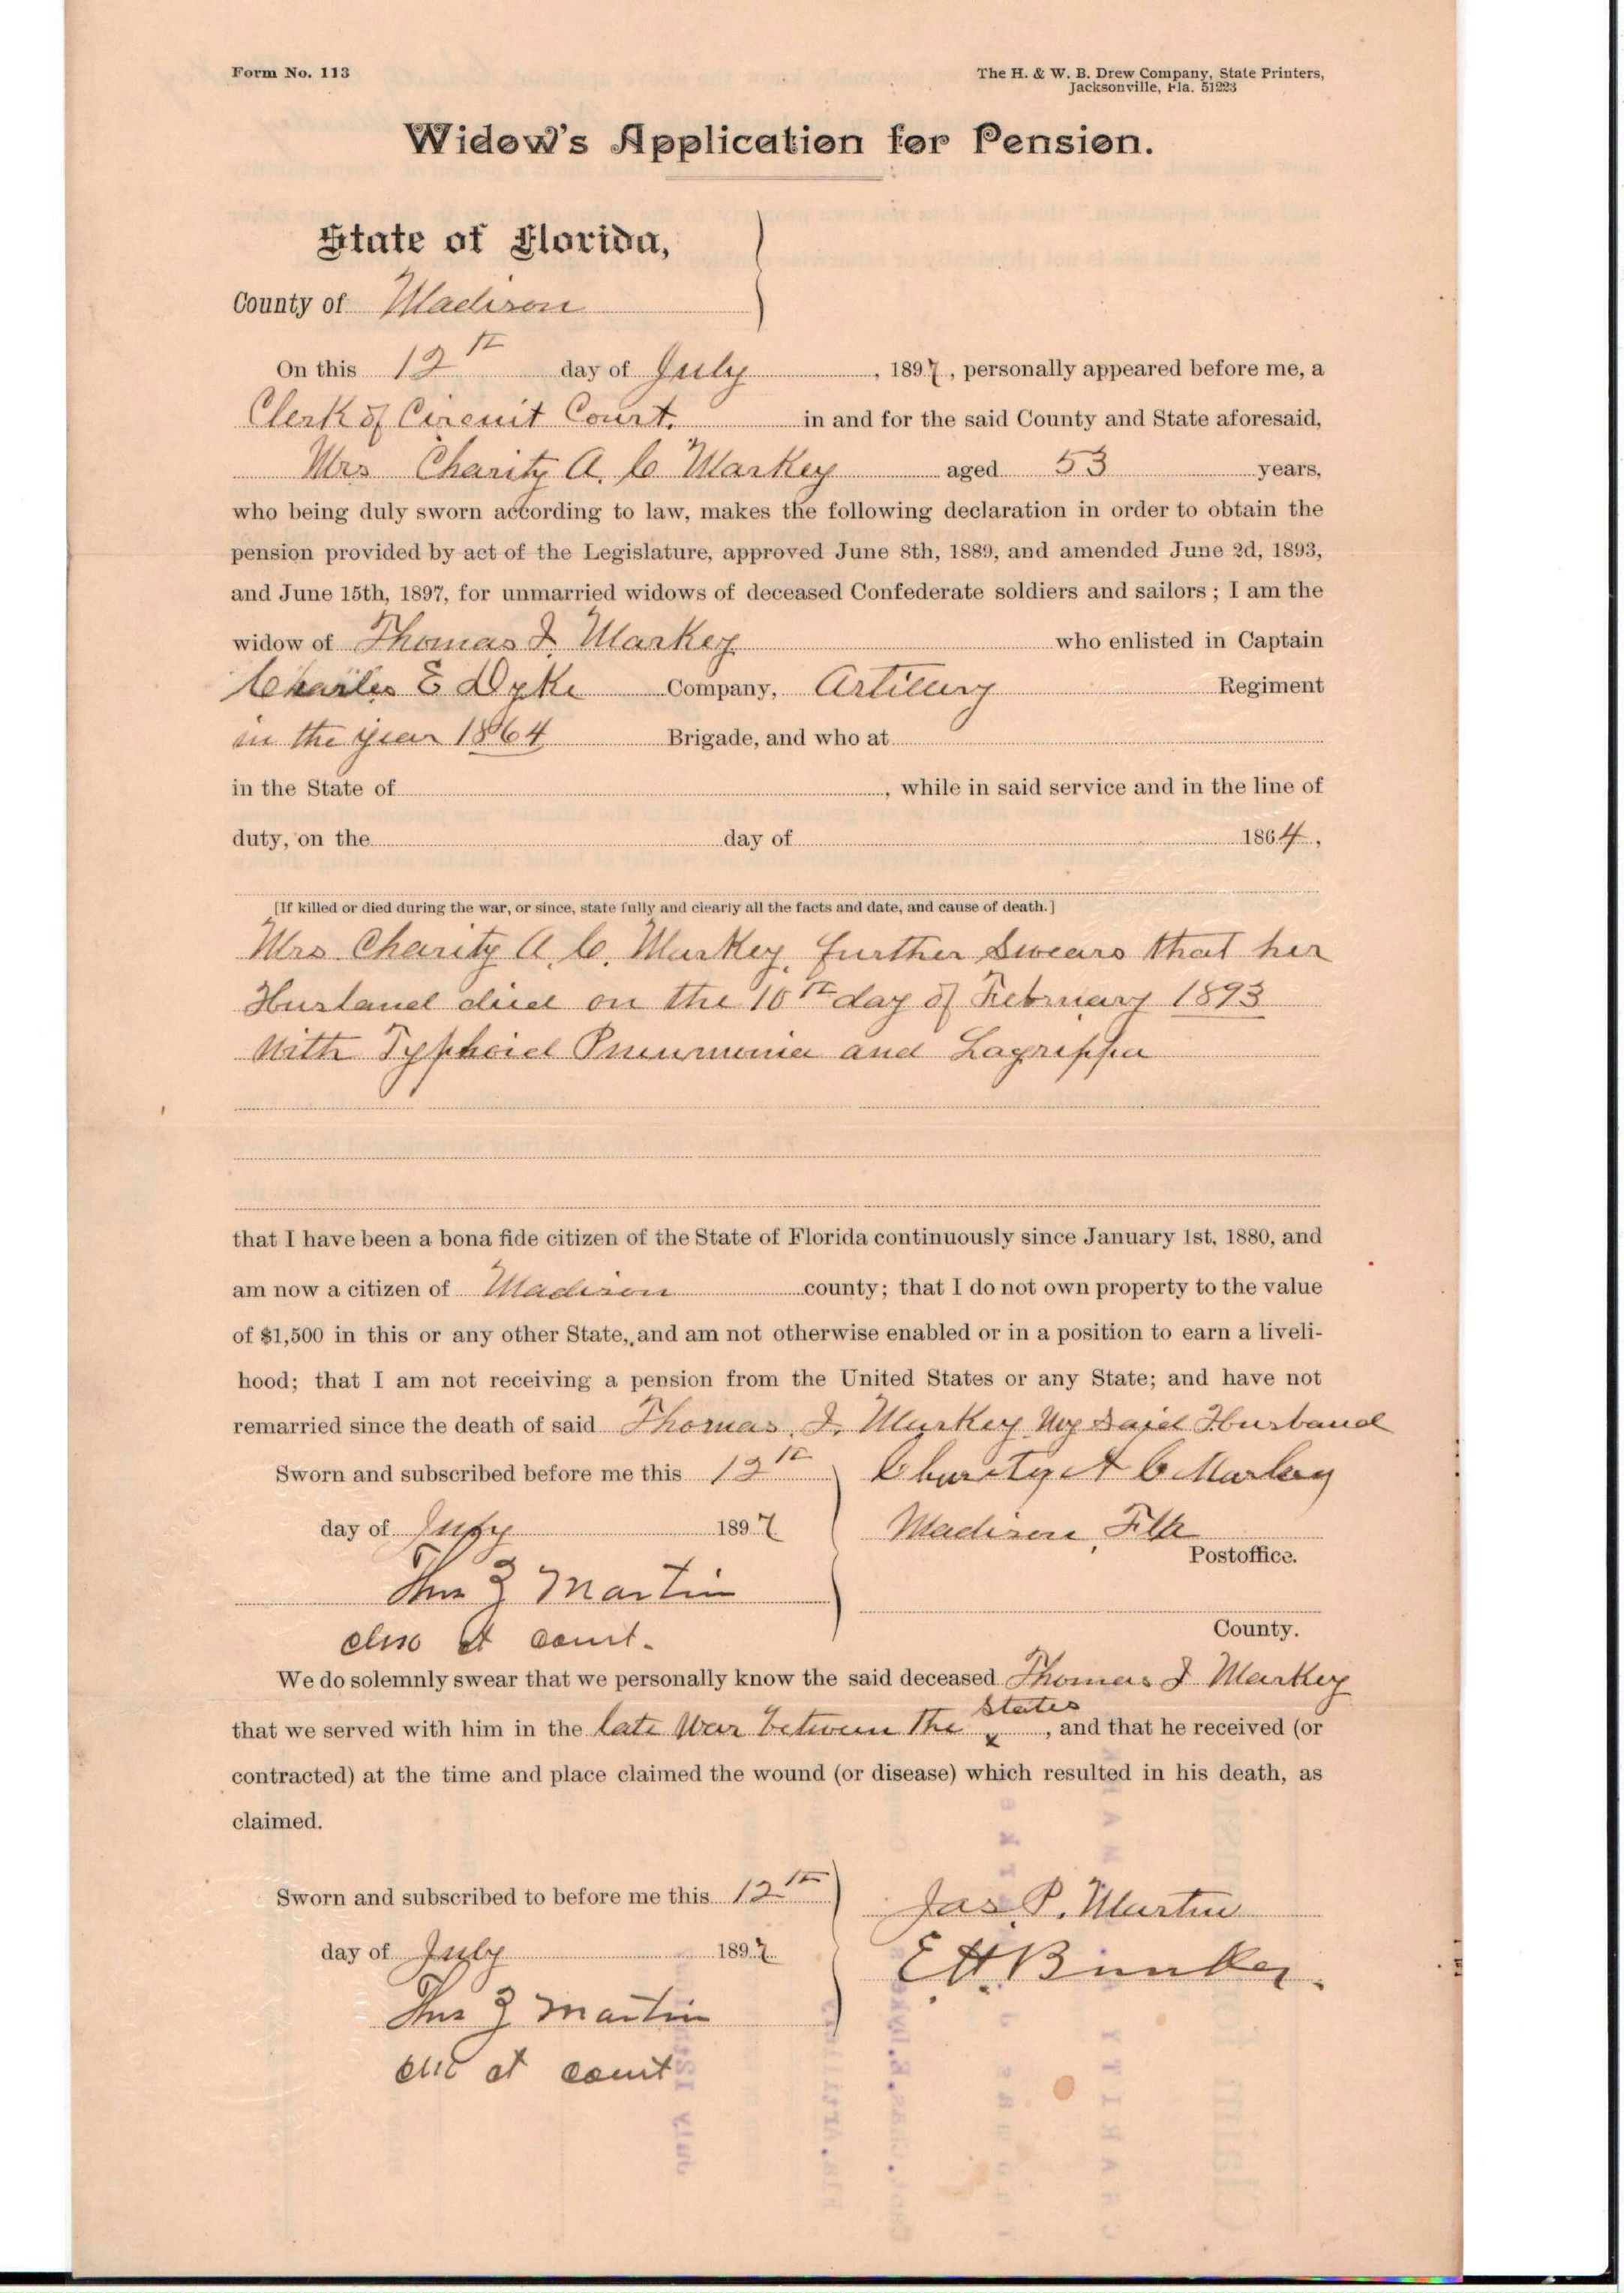 Form No. 113
The H. & W. B. Drew Company, State Printers,
Jacksonville, Fla. 51223
Widow's Application for Pension.
State of Florida,
County of Madison
On this 12th day of July, 1897, personally appeared before me, a
Clerk of Circuit Court. in and for the said County and State aforesaid,
Mrs Charity A. C Markey aged 53 years,
who being duly sworn according to law, makes the following declaration in order to obtain the
pension provided by act of the Legislature, approved June 8th, 1889, and amended June 2d, 1893,
and June 15th, 1897, for unmarried widows of deceased Confederate soldiers and sailors; I am the
widow of Thomas J. Markey who enlisted in Captain
Charles E Dyke Company, Artillery Regiment
in the year 1864 Brigade, and who at
in the State of , while in said service and in the line of
duty, on the day of 1864,
[If killed or died during the war, or since, state fully and clearly all the facts and date, and cause of death.]
Mrs Charity A. C. Markey, further Swears that her
Husband died on the 10th day of February 1893
with Typhoid Pneumonia and Lagrippa
that I have been a bona fide citizen of the State of Florida continuously since January 1st, 1880, and
am now a citizen of Madison county; that I do not own property to the value
of $1,500 in this or any other State, and am not otherwise enabled or in a position to earn a liveli-
hood; that I am not receiving a pension from the United States or any State; and have not
remarried since the death of said Thomas. J. Markey My Said Husband
Sworn and subscribed before me this 12th Charity A C Markey
day of July 1897 Madison, Fla
Postoffice.
Martin
court.
County.
We do solemnly swear that we personally know the said deceased Thomas J Markey
that we served with him in the late War between the States, and that he received (or
contracted) at the time and place claimed the wound (or disease) which resulted in his death, as
claimed.
Sworn and subscribed to before me this 12th Jas. P. Martin
day of July 1897 E H Bunker.
Martin
court